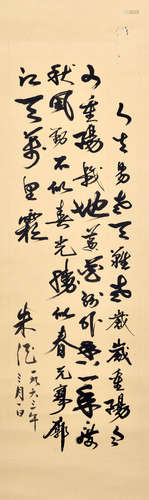 人生易老天難老歲歲重陽今
又重陽戰地黃花分外香一年一度
秋風勁不似春光勝似春光寥廓
江天萬里霜
朱德
一九六三年
三月一日